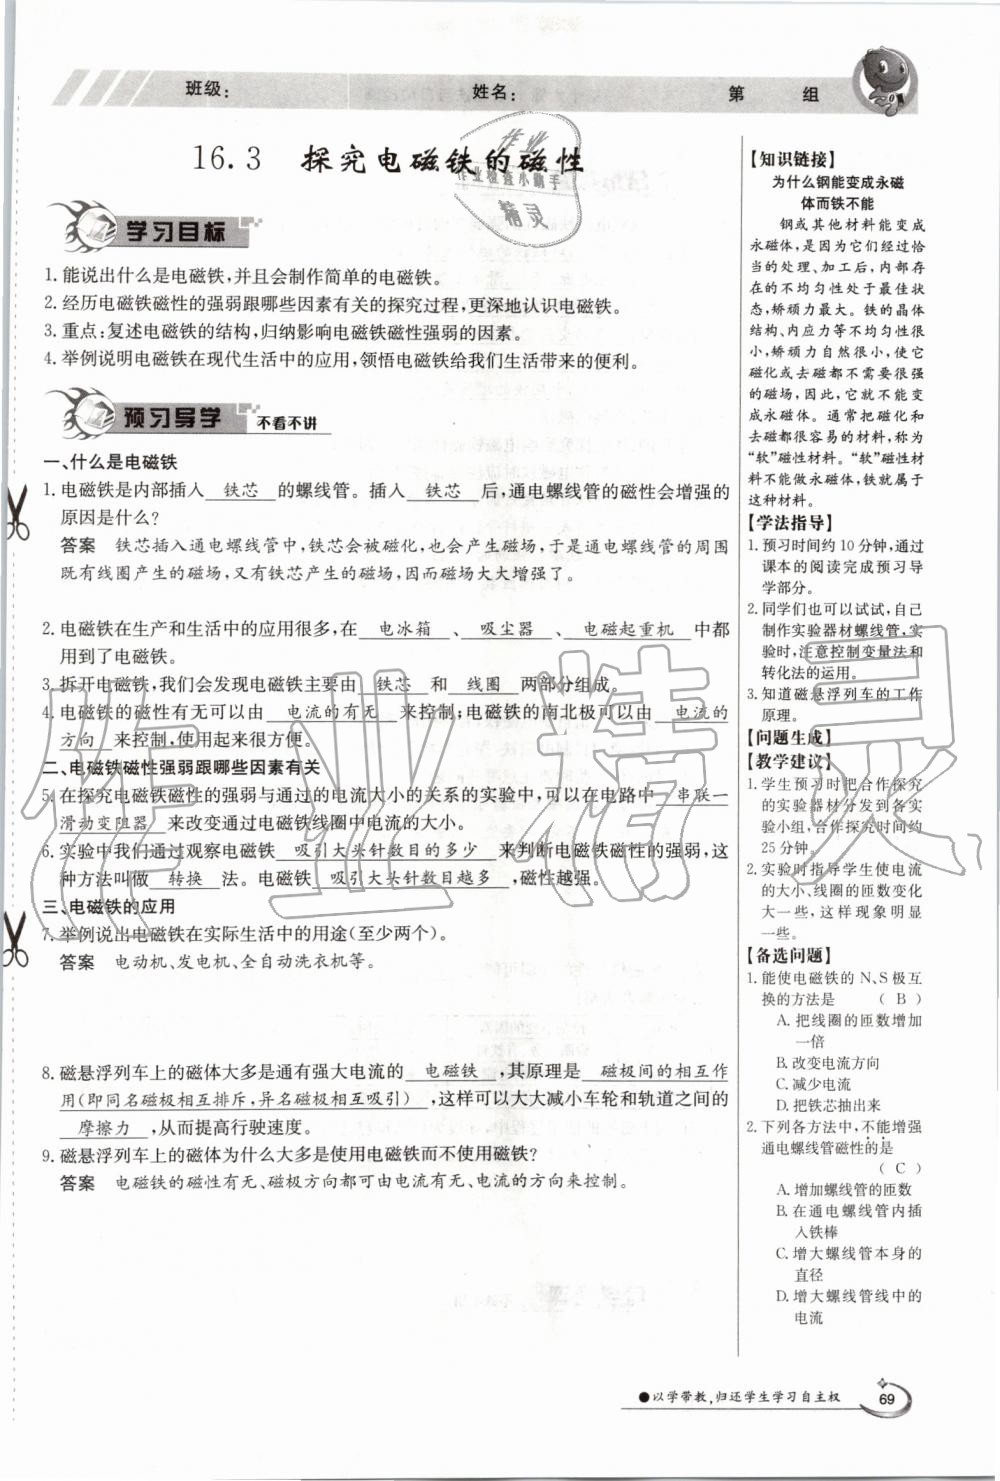 班级: 姓名: 第 组
16.3 探究电磁铁的磁性
作业
作业检查小助手
精灵
学习目标
1. 能说出什么是电磁铁,并且会制作简单的电磁铁。
2. 经历电磁铁磁性的强弱跟哪些因素有关的探究过程,更深地认识电磁铁。
3. 重点:复述电磁铁的结构,归纳影响电磁铁磁性强弱的因素。
4. 举例说明电磁铁在现代生活中的应用,领悟电磁铁给我们生活带来的便利。
预习导学 不看不讲
一、什么是电磁铁
1. 电磁铁是内部插入 铁芯 的螺线管。插入 铁芯 后,通电螺线管的磁性会增强的
原因是什么?
答案 铁芯插入通电螺线管中,铁芯会被磁化,也会产生磁场,于是通电螺线管的周围
既有线圈产生的磁场,又有铁芯产生的磁场,因而磁场大大增强了。
2. 电磁铁在生产和生活中的应用很多,在 电冰箱 、 吸尘器 、 电磁起重机 中都
用到了电磁铁。
3. 拆开电磁铁,我们会发现电磁铁主要由 铁芯 和 线圈 两部分组成。
4. 电磁铁的磁性有无可以由 电流的有无 来控制;电磁铁的南北极可以由 电流的
方向 来控制,使用起来很方便。
二、电磁铁磁性强弱跟哪些因素有关
5. 在探究电磁铁磁性的强弱与通过的电流大小的关系的实验中,可以在电路中 串联一
滑动变阻器 来改变通过电磁铁线圈中电流的大小。
6. 实验中我们通过观察电磁铁 吸引大头针数目的多少 来判断电磁铁磁性的强弱,这
种方法叫做 转换 法。电磁铁 吸引大头针数目越多 ,磁性越强。
三、电磁铁的应用
7. 举例说出电磁铁在实际生活中的用途(至少两个)。
答案 电动机、发电机、全自动洗衣机等。
8. 磁悬浮列车上的磁体大多是通有强大电流的 电磁铁 ,其原理是 磁极间的相互作
用(即同名磁极相互排斥,异名磁极相互吸引) ,这样可以大大减小车轮和轨道之间的
摩擦力 ,从而提高行驶速度。
9. 磁悬浮列车上的磁体为什么大多是使用电磁铁而不使用磁铁?
答案 电磁铁的磁性有无、磁极方向都可由电流有无、电流的方向来控制。
【知识链接】
为什么钢能变成永磁
体而铁不能
钢或其他材料能变成
永磁体,是因为它们经过恰
当的处理、加工后,内部存
在的不均匀性处于最佳状
态,矫顽力最大。铁的晶体
结构、内应力等不均匀性很
小,矫顽力自然很小,使它
磁化或去磁都不需要很强
的磁场,因此,它就不能变
成永磁体。通常把磁化和
去磁都很容易的材料,称为
“软”磁性材料。“软”磁性材
料不能做永磁体,铁就属于
这种材料。
【学法指导】
1. 预习时间约10分钟,通过
课本的阅读完成预习导
学部分。
2. 同学们也可以试试,自己
制作实验器材螺线管,实
验时,注意控制变量法和
转化法的运用。
3. 知道磁悬浮列车的工作
原理。
【问题生成】
【教学建议】
1. 学生预习时把合作探究
的实验器材分发到各实
验小组,合作探究时间约
25分钟。
2. 实验时指导学生使电流
的大小、线圈的匝数变化
大一些,这样现象明显
一些。
【备选问题】
1. 能使电磁铁的N、S极互
换的方法是 ( B )
A. 把线圈的匝数增加
一倍
B. 改变电流方向
C. 减少电流
D. 把铁芯抽出来
2. 下列各方法中,不能增强
通电螺线管磁性的是
( C )
A. 增加螺线管的匝数
B. 在通电螺线管内插
入铁棒
C. 增大螺线管本身的
直径
D. 增大螺线管线中的
电流
作业精灵
●以学带教,归还学生学习自主权 69